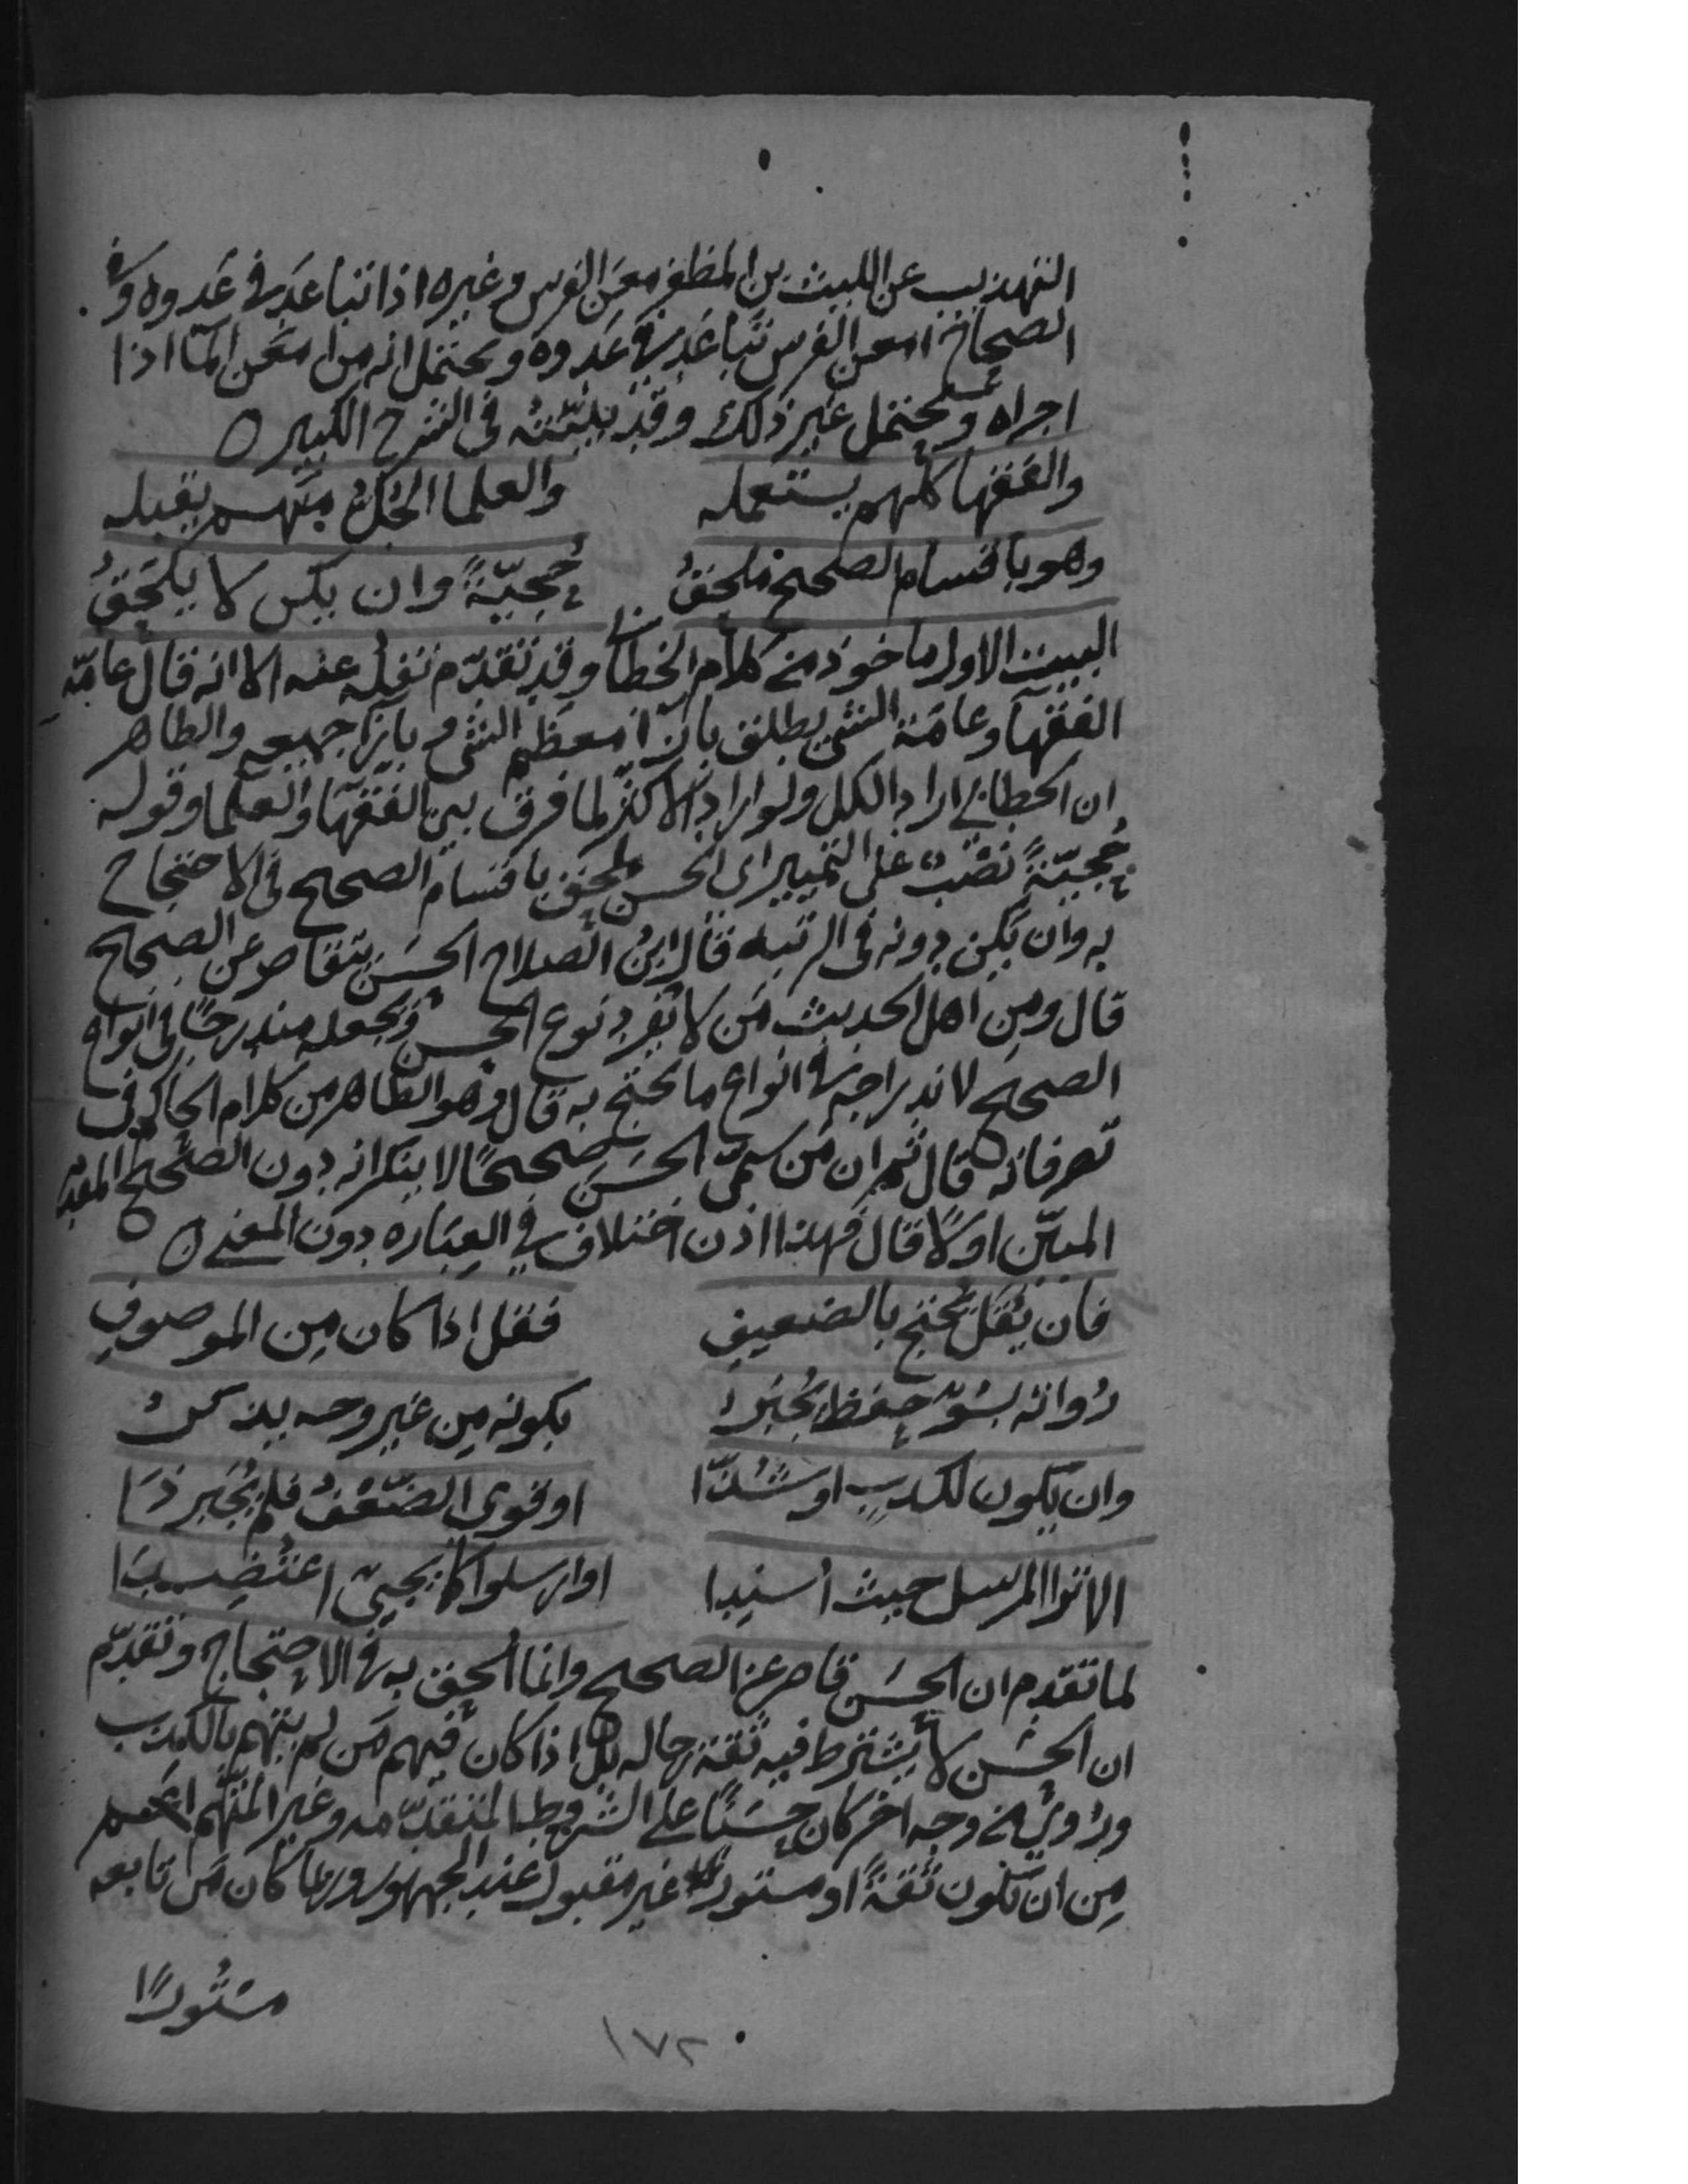 التهذيب عن الليث بن المظفر معن الفرس وغيره اذا تباعد في عدوه وفي
الصحاح امعن الفرس تباعد في عدوه ويحتمل انه من امعن الما اذا
اجراه ويحتمل غير ذلك وقد بينته في الشرح الكبير ه
والفقها كلهم يستعمله والعلما الجُلُّ منهم يقبله
وهو باقسام الصحيح ملحقُ حُجيّةً وان يكن لا يلحَقُ
البيت الاول ماخوذ من كلام الخطابي وقد تقدّم نقله عنه الا انه قال عامّة
الفقهآ وعامّة الشي يطلق بازآ معظم الشي وبازآ جميعه والظاهر
ان الخطابي اراد الكل ولو اراد الاكثر لما فرق بين الفقهآ والعلما وقوله
حُجيّةً نصْبٌ على التمييز اى الحسن ملحق باقسام الصحيح فى الاحتجاج
به وان يكن دونه فى الرتبه قال ابنُ الصلاح الحسَن يتقاصر عن الصحيح
قال ومِن اهل الحديث مَن لا يُفرد نوع الحسن ويجعله مندرجًا في انواع
الصحيح لاندراجه في انواع ما يحتج به قال وهو الظاهر من كلام الحاكم فى
تصرفاته قال ثم ان مَن سمّى الحسَن صحيحًا لا ينكر انه دون الصحيح المقدّم
المبيّن اوّلًا قال فهذا اذن اختلاف في العبَاره دون المعنى ه
فان يُقَل يُحتج بالضعيفِ فقل اذا كان مِن الموصوفِ
رُواته بسُوّ حِفظٍ يُجبَرُ بكونه مِن غير وجه يذكرُ
وان يكون لكذبٍ او شَذّا او قوى الضّعْفُ فلم يُجبَر ذَا
الا ترا المرسل حيث اُسنِدا او ارسلوا كما يجيّ اعتُضِدَا
لما تقدم ان الحسَن قاصر عن الصحيح وانما اُلحِق به في الاحتجاج وتقدّم
ان الحسَن لا يُشترط فيه ثقة رجاله بل اذا كان فيهم مَن لم يتهم بالكذب
ورُوي من وجه اخر كان حسَنًا على الشروط المتقدّمه وغير المتّهم اعَم
مِن ان تكون ثقةً او مستورًا غير مقبول عند الجمهور وربما كان مَن تابعه
مستُورًا
١٧٢